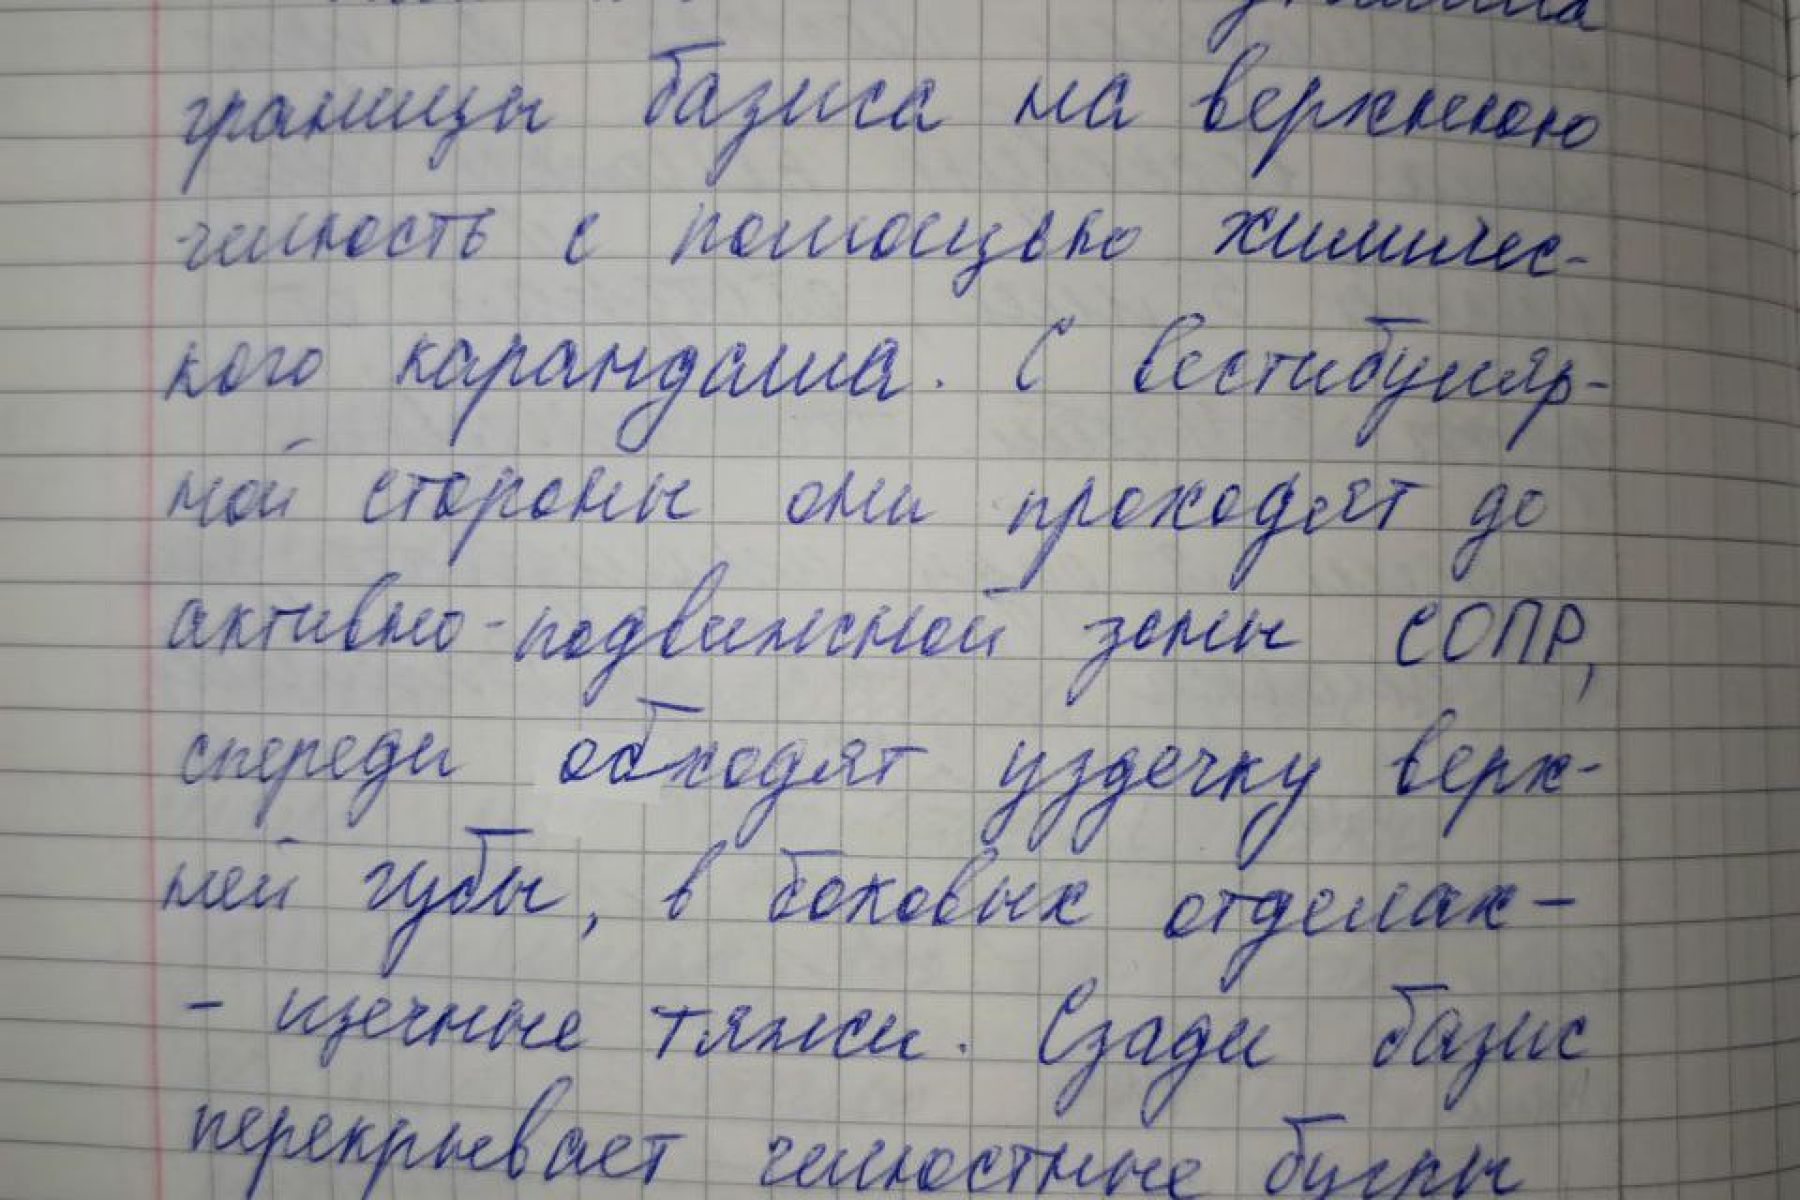 границы базиса на верхнюю
челюсть с помощью химичес-
кого карандаша. С вестибуляр-
ной стороны они проходят до
активно-подвижной зоны СОПР,
спереди обходят уздечку верх-
ней губы, в боковых отделах -
- щечные тяжи. Сзади базис
перекрывает челюстные бугры